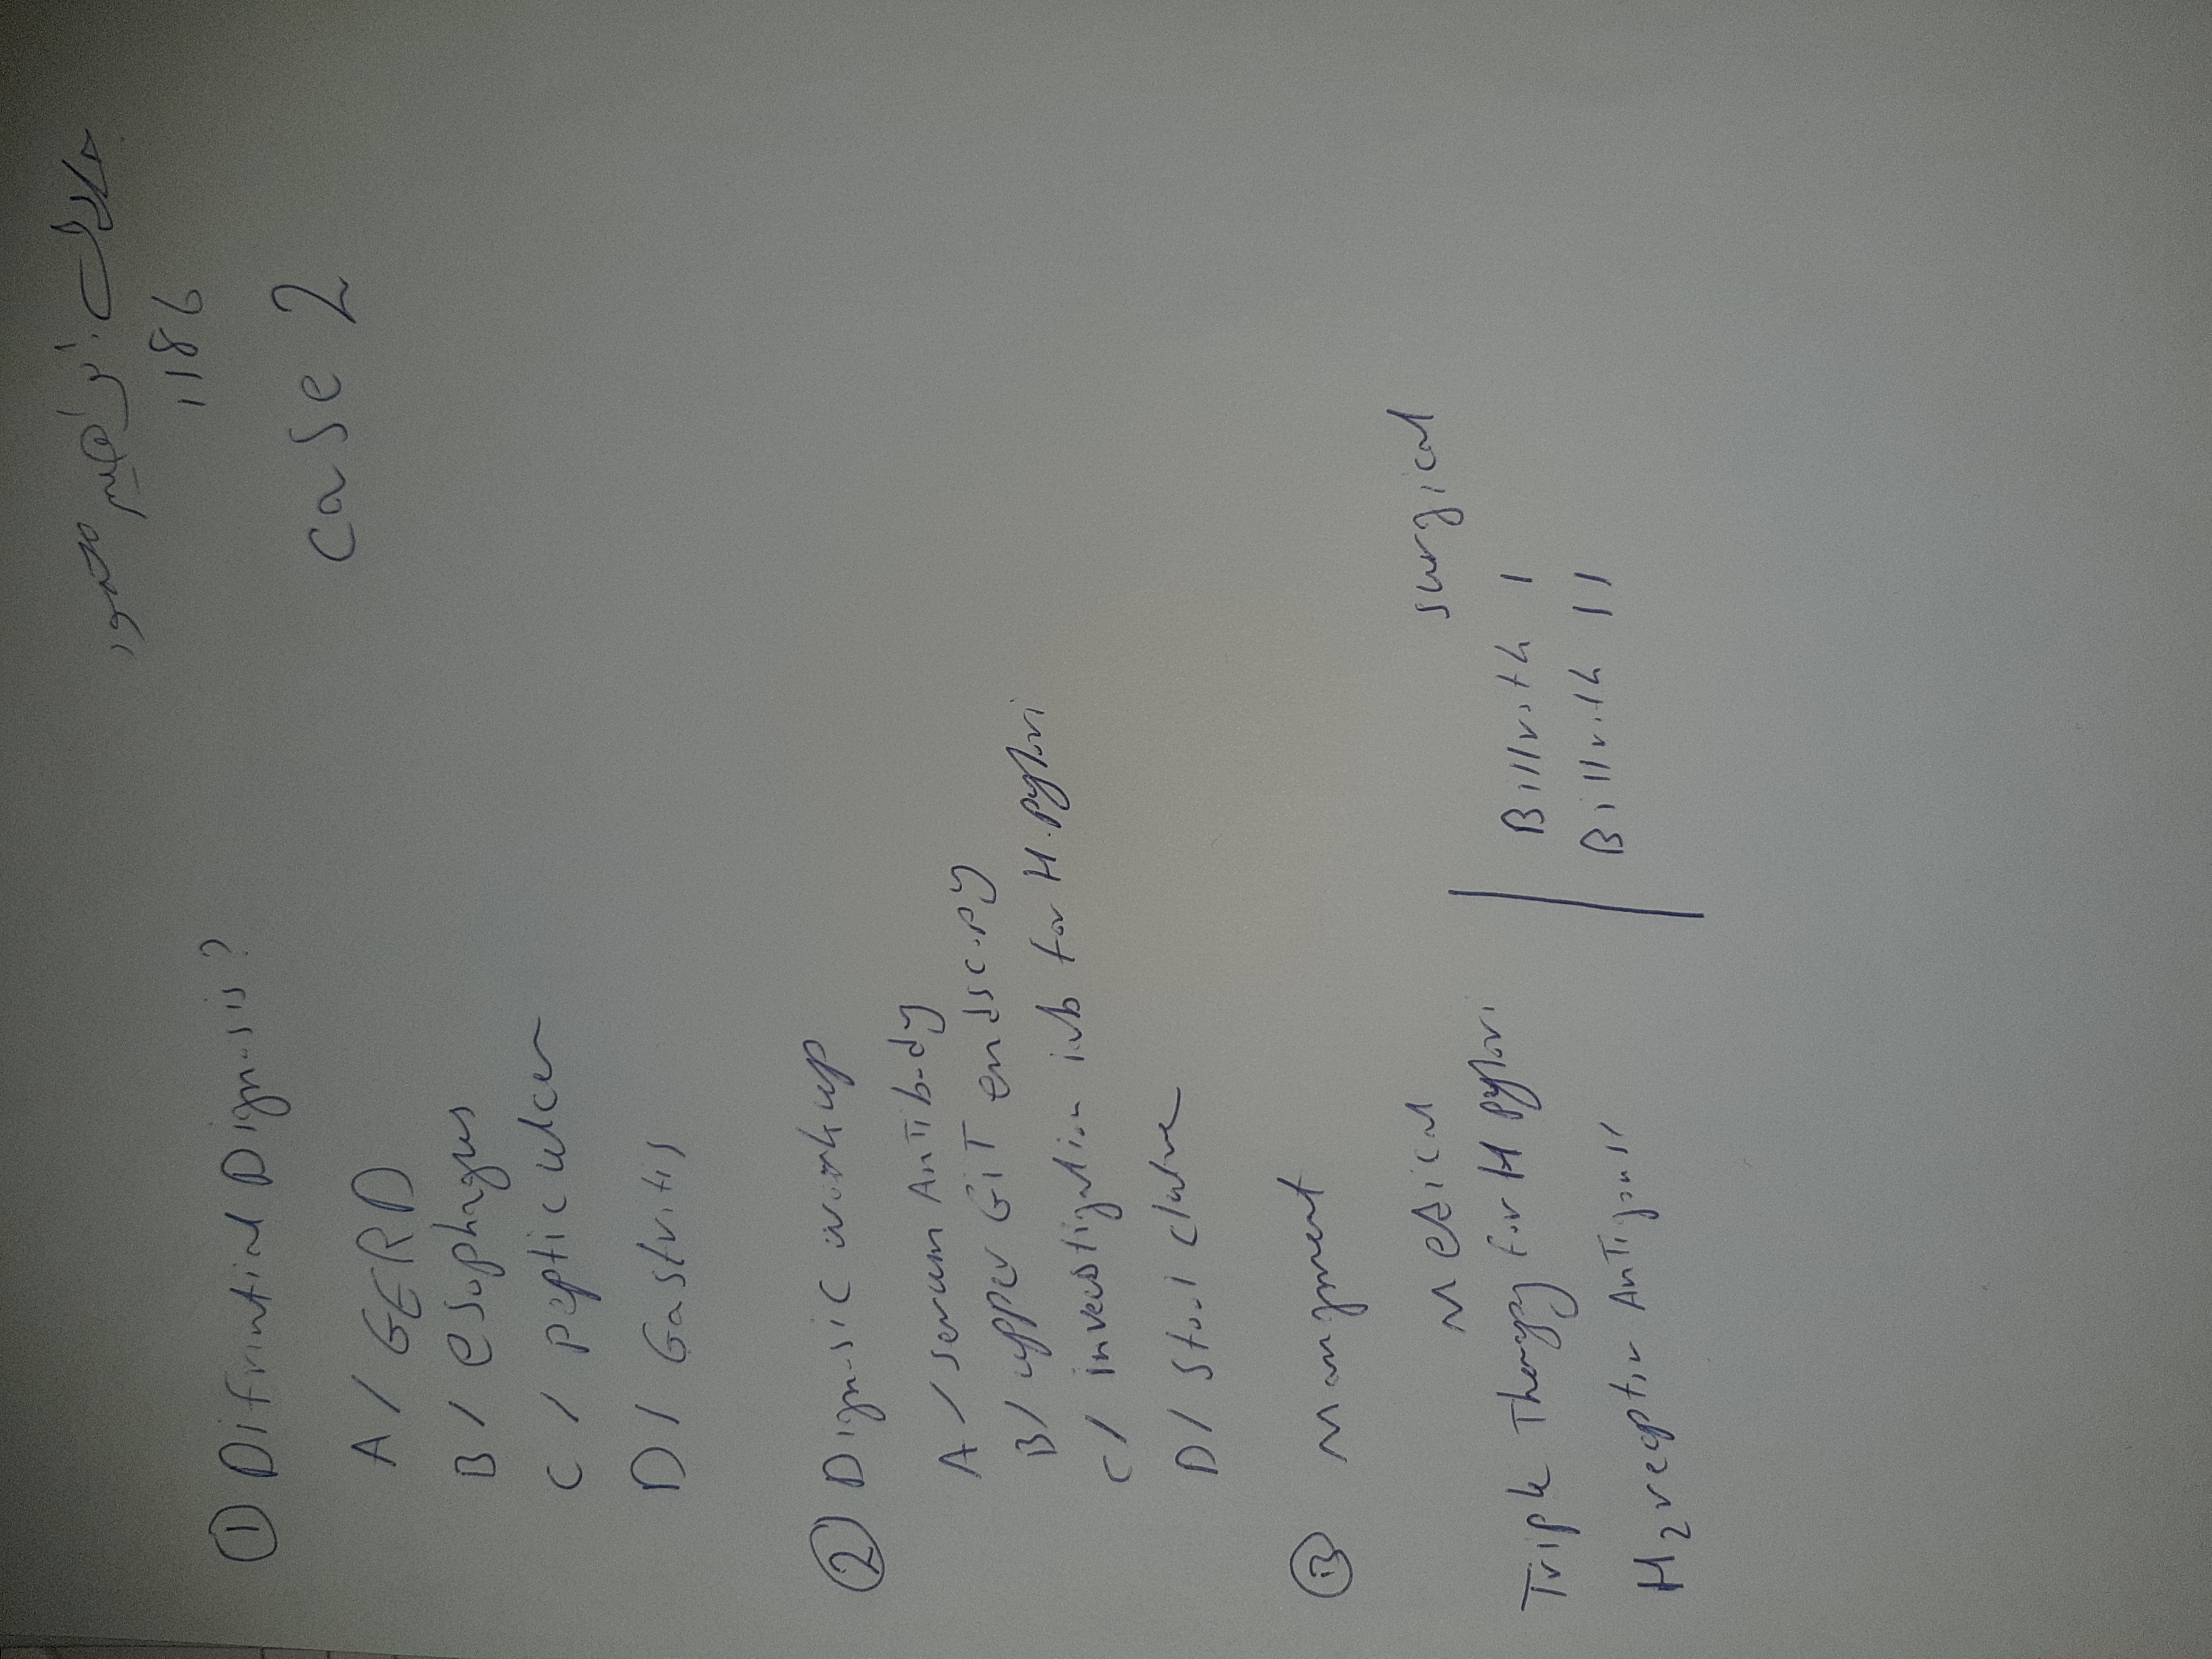 1186
Case 2
① Difrintial Dignosis?
A / GERD
B / esophagus
C / peptic ulcer
D / Gastritis
② Dignosic workup
A / serum AnTibody
B / upper GiT endscopy
C / investigation lab for H.pylori
D / Stool cluture
③ Mangment
Medical
surgical
Triple Therapy for H pylori
Billroth I
H2 receptor AnTigonist
Billroth II